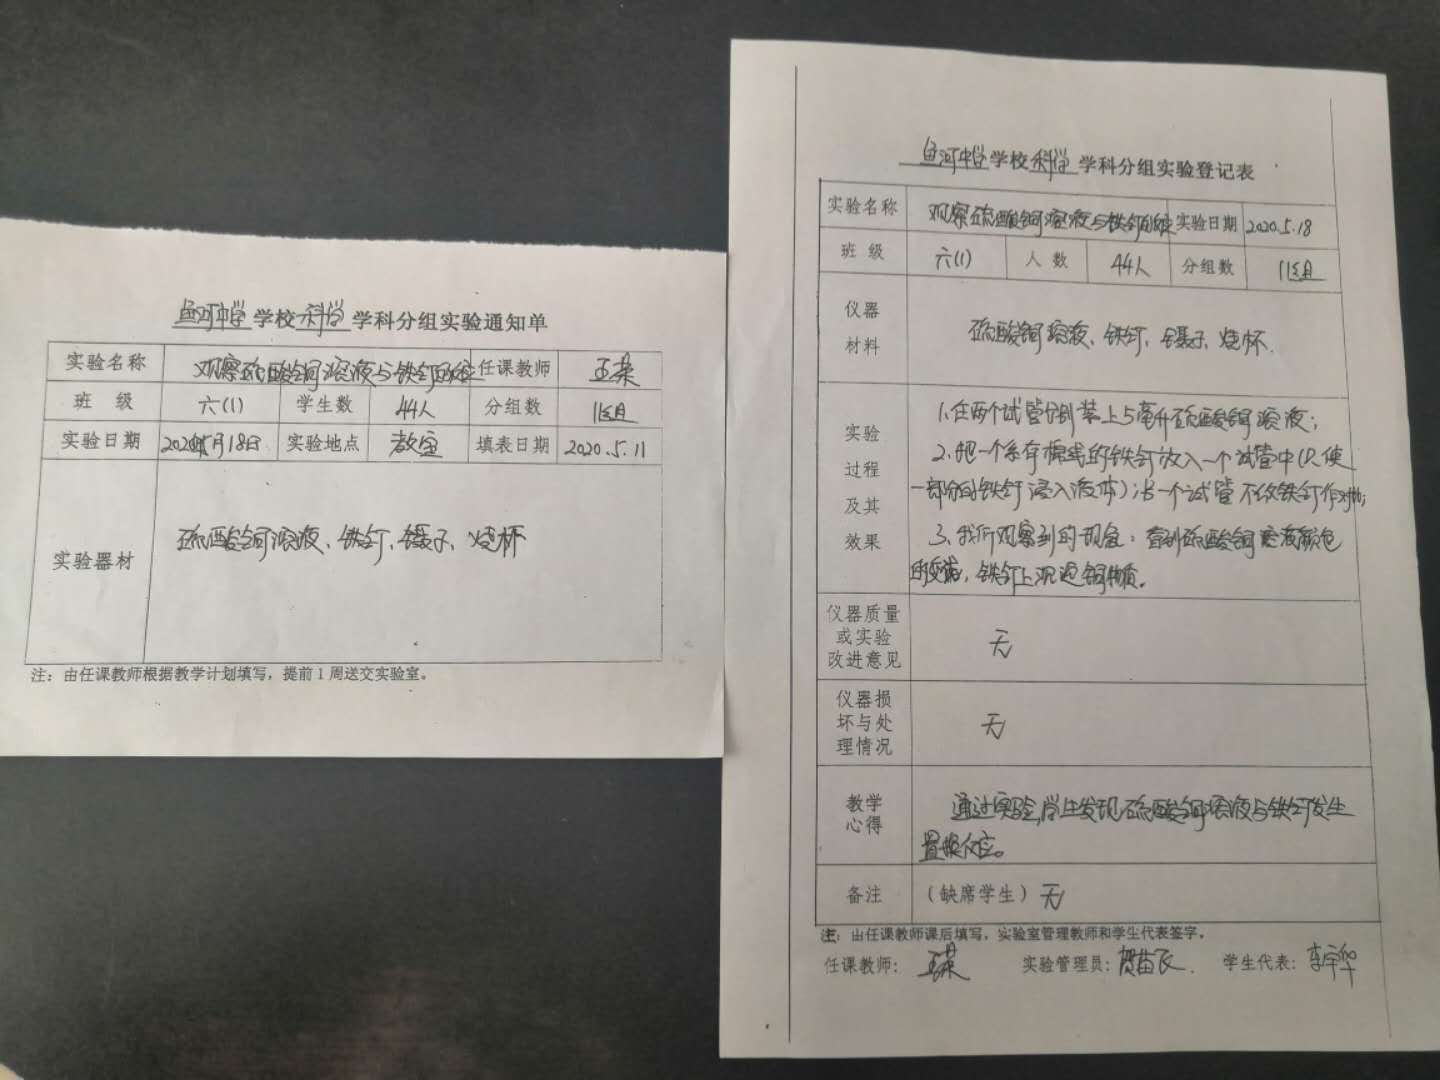 鱼河中学学校科学学科分组实验通知单
实验名称 观察硫酸铜溶液与铁钉的反应 任课教师 王荣
班 级 六(1) 学生数 44人 分组数 11组
实验日期 2020年5月18日 实验地点 教室 填表日期 2020.5.11
实验器材 硫酸铜溶液、铁钉、镊子、烧杯
注：由任课教师根据教学计划填写，提前1周送交实验室。
鱼河中学学校科学学科分组实验登记表
实验名称 观察硫酸铜溶液与铁钉的反应 实验日期 2020.5.18
班 级 六(1) 人 数 44人 分组数 11组
仪器材料 硫酸铜溶液、铁钉、镊子、烧杯.
实验过程及其效果
1.在两个试管分别装上5毫升硫酸铜溶液；
2.把一个系有棉线的铁钉放入一个试管中(只使
一部分的铁钉浸入液体)；另一个试管不放铁钉作对比；
3、我们观察到的现象：看到硫酸铜溶液颜色
的变浅，铁钉上沉 铜物质.
仪器质量或实验改进意见 无
仪器损坏与处理情况 无
教学心得 通过实验,学生发现硫酸铜溶液与铁钉发生
置换反应。
备注 （缺席学生）无
注：由任课教师课后填写，实验室管理教师和学生代表签字。
任课教师：王荣 实验管理员：贺苗飞. 学生代表：李宇华